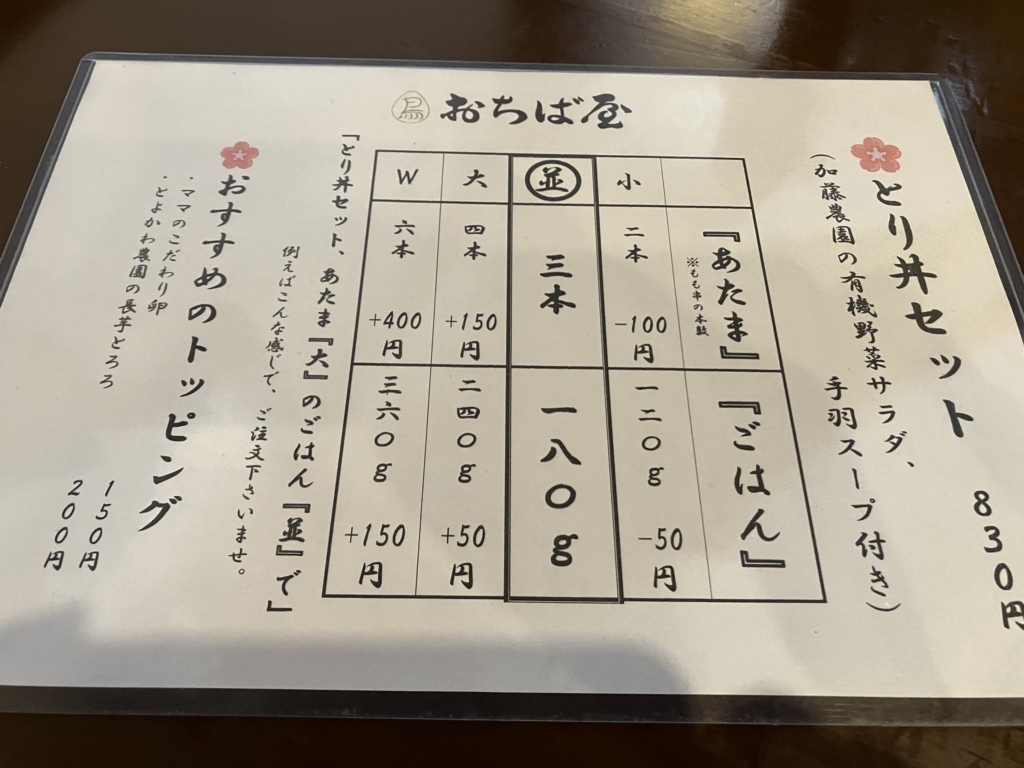 おちば屋
とり丼セット 830円
(加藤農園の有機野菜サラダ、 手羽スープ付き)
『あたま』
※もも串の本数
『ごはん』
小
二本
-100円
一二〇g
-50円
並
三本
一八〇g
大
四本
+150円
二四〇g
+50円
W
六本
+400円
三六〇g
+150円
「とり丼セット、あたま『大』のごはん『並』で」
例えばこんな感じで、ご注文下さいませ。
おすすめのトッピング
・ママのこだわり卵 150円
・とよかわ農園の長芋とろろ 200円